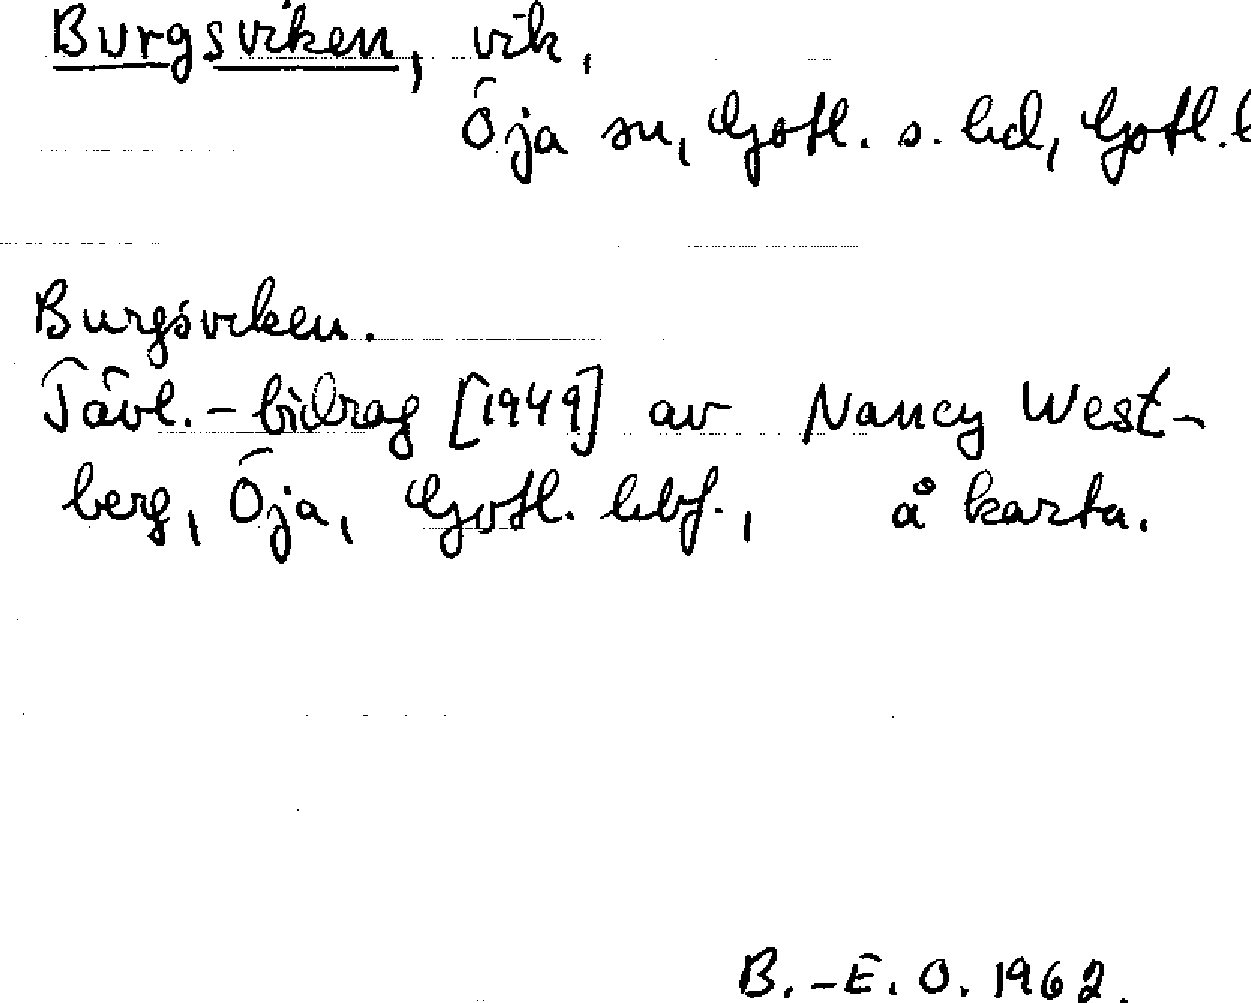 Burgsviken, vik,
Öja sn, Gotl. s. hd, Gotl. l
Burgsviken.
Tävl.-bidrag [1949] av Nancy West-
berg, Öja, Gotl. hbf., å karta.
B.-E. O. 1962.